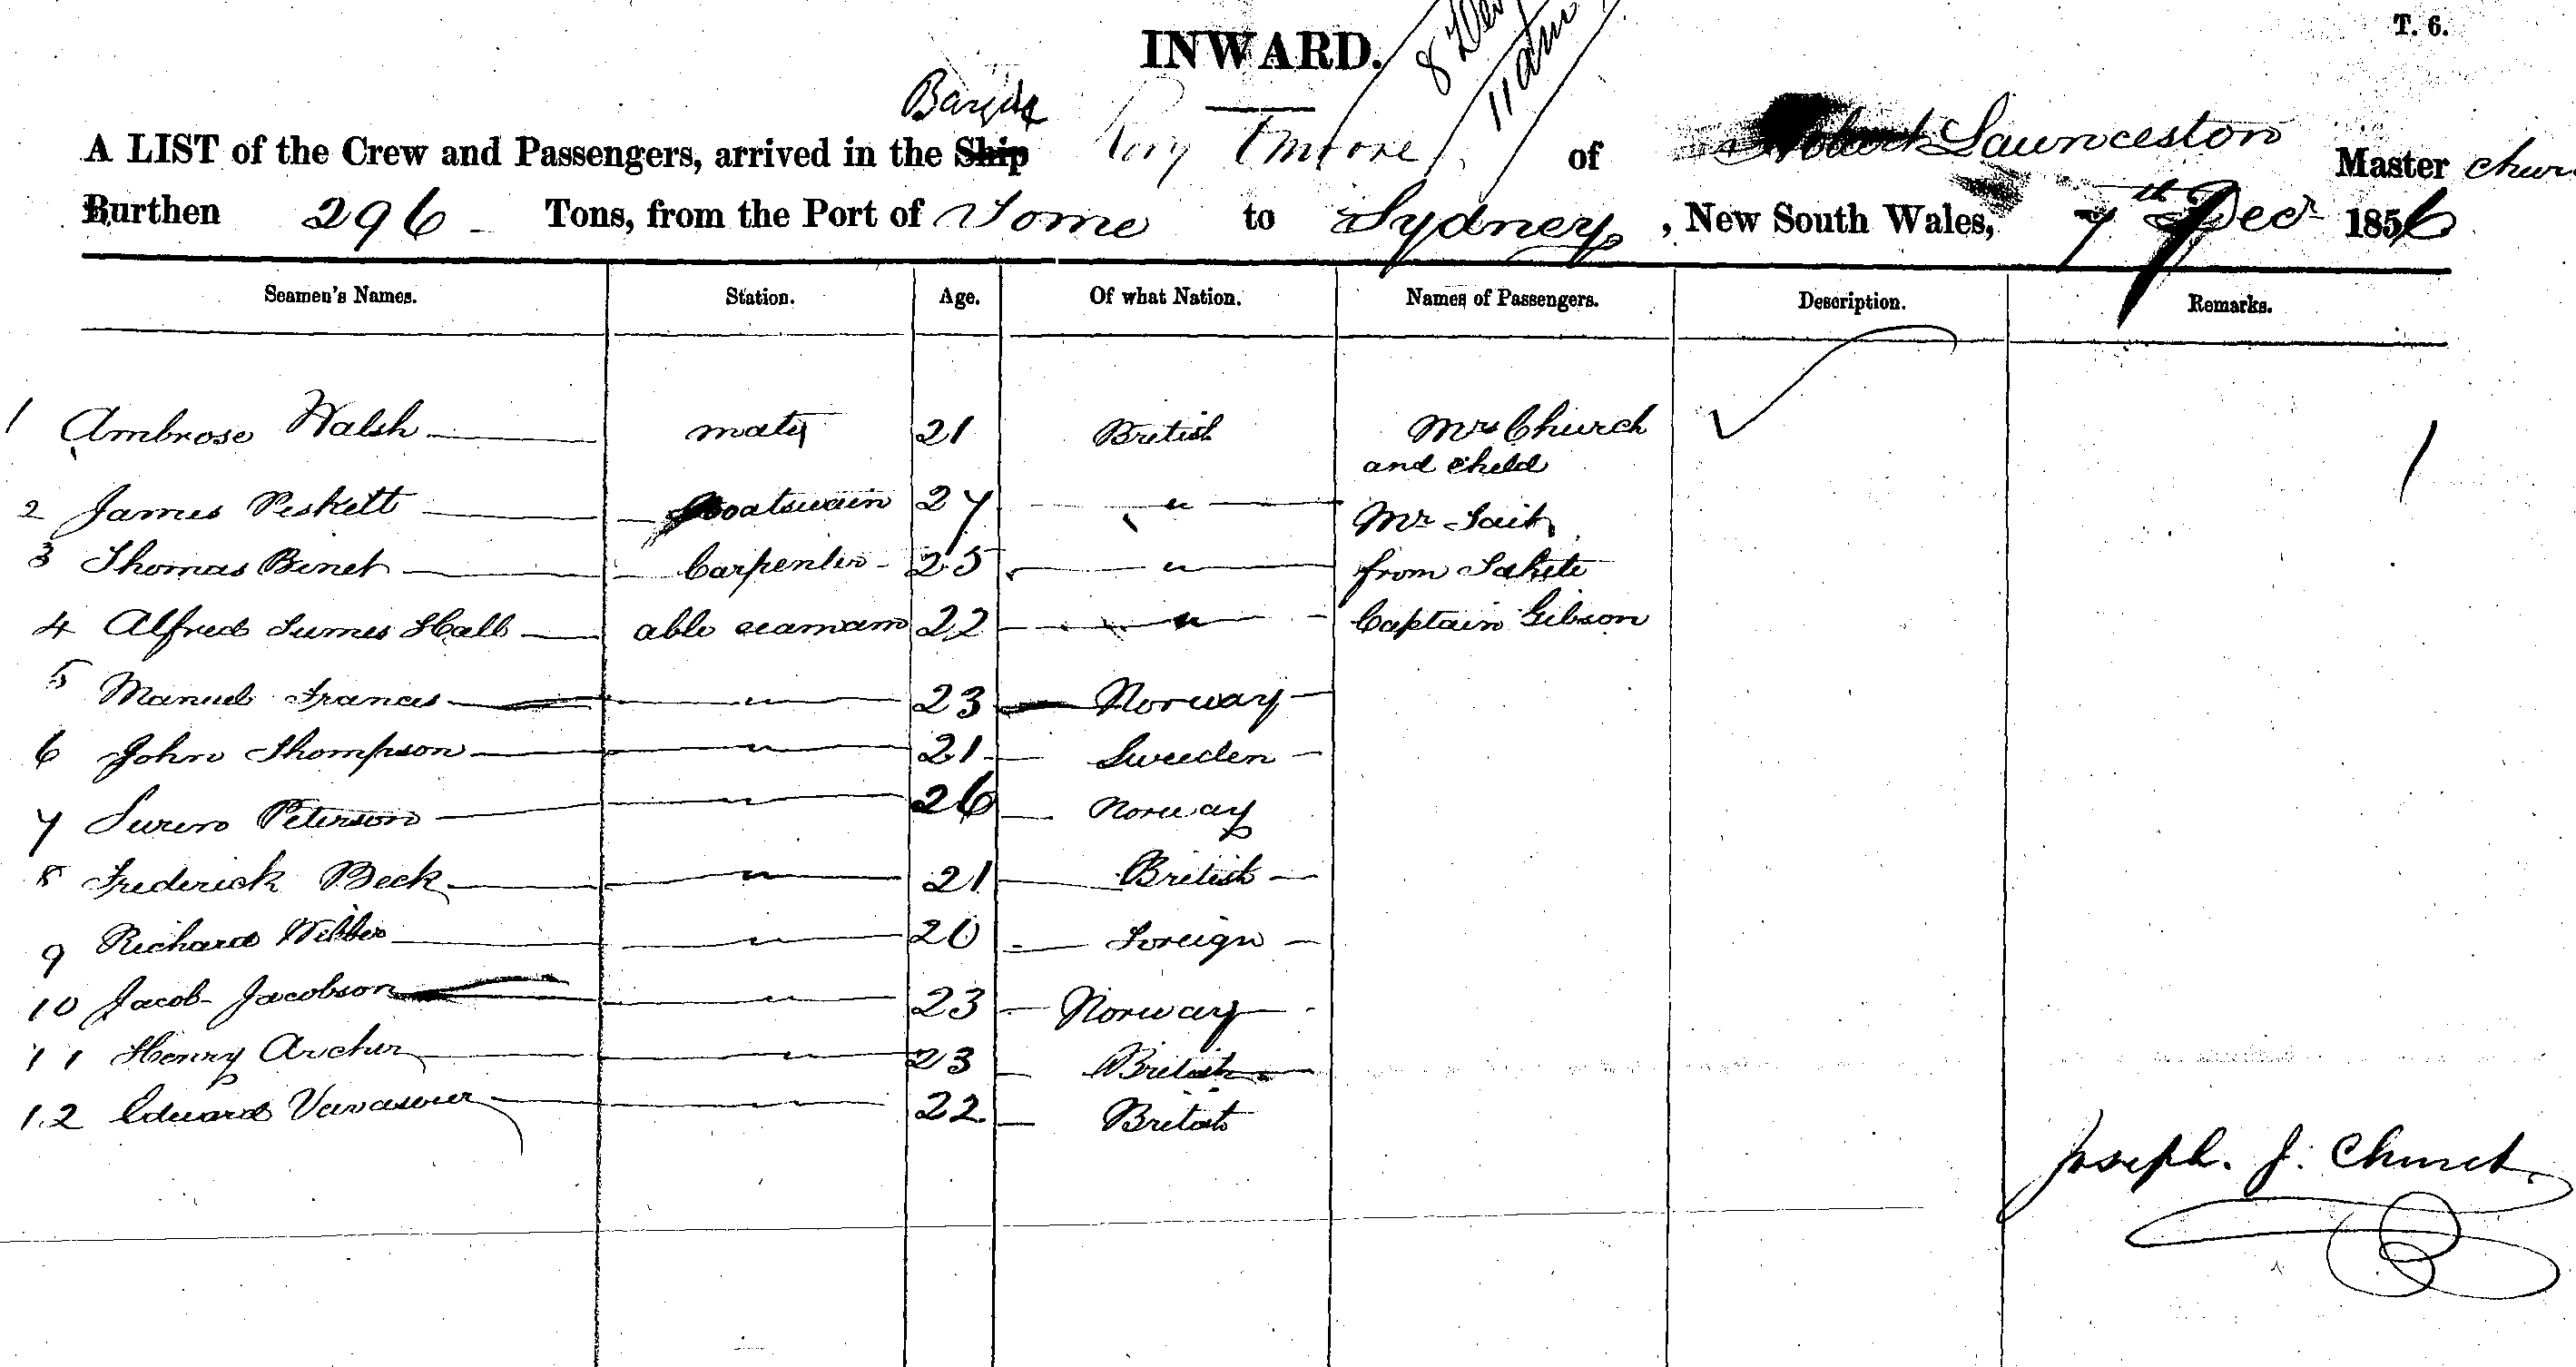 T. 6.
INWARD.
8 Decr
11 am
Barque
A LIST of the Crew and Passengers, arrived in the Ship Rory OMoore of Robert Launceston Master Church
Burthen 296 Tons, from the Port of Tome to Sydney, New South Wales, 7th Decr 1856
Seamen's Names. Station. Age. Of what Nation. Names of Passengers. Description. Remarks.
1 Ambrose Walsh mate 21 British Mrs Church
and Child
2 James Peskett Boatswain 27 " Mr Tait
3 Thomas Binet Carpenter 25 " from Tahete
4 Alfred James Hall able seaman 22 " Captain Gibson
5 Manuel Francis " 23 Norway
6 John Thompson " 21 Sweeden
7 Suren Peterson " 26 Norway
8 Frederick Beck " 21 British
9 Richard Webber " 20 Foreign
10 Jacob Jacobson " 23 Norway
11 Henry Archer " 23 British
12 Edward Vavasour " 22 British
Joseph. J. Church